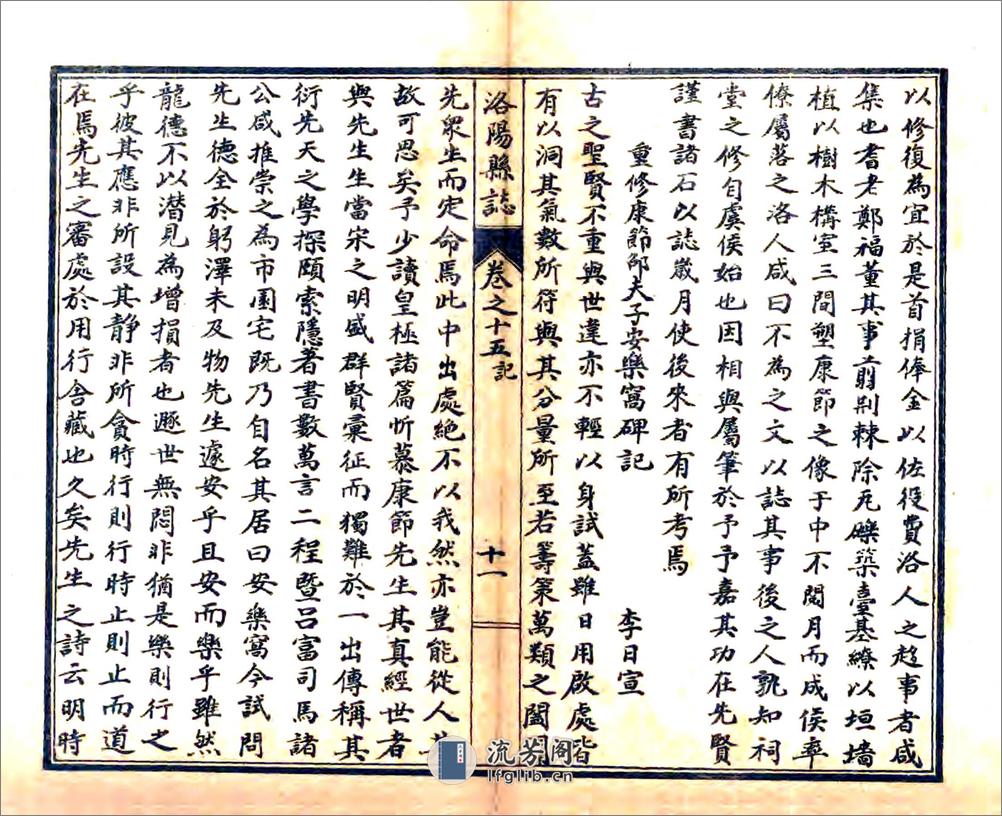 以修復為宜於是首捐俸金以佐役費洛人之趍事者咸
集也耆老鄭福董其事剪荆棘除瓦礫築臺基繚以垣墻
植以樹木構室三間塑康節之像于中不閱月而成侯率
僚屬落之洛人咸曰不為之文以誌其事後之人孰知祠
堂之修自虞侯始也因相與屬筆於予予嘉其功在先賢
謹書諸石以誌歲月使後來者有所考焉
重修康節邵夫子安樂窩碑記 李日宣
古之聖賢不重與世違亦不輕以身試蓋雖日用啟處皆
有以洞其氣數所符與其分量所至若籌策萬類之闔闢
洛陽縣誌 卷之十五記 十一
先衆生而定命焉此中出處絶不以我然亦豈能從人
故可思矣予少讀皇極諸篇忻慕康節先生其真經世者
與先生生當宋之明盛群賢彙征而獨難於一出傳稱其
衍先天之學探頤索隱著書數萬言二程暨吕富司馬諸
公咸推崇之為市園宅既乃自名其居曰安樂窩今試問
先生德全於躬澤未及物先生遽安乎且安而樂乎雖然
龍德不以潛見為增損者也遯世無悶非猶是樂則行之
乎彼其應非所設其靜非所貪時行則行時止則止而道
在焉先生之審處於用行舍藏也久矣先生之詩云明時
流芳阁
lfglib.cn